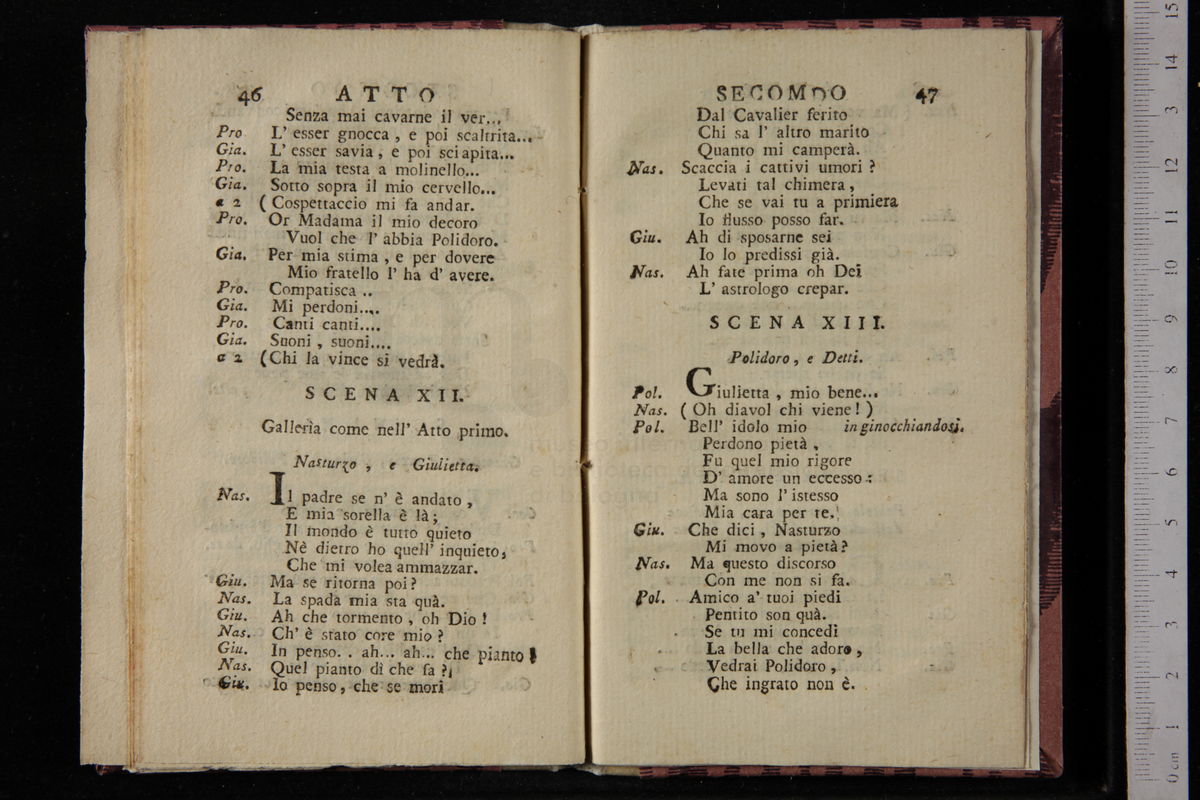 46 ATTO
Senza mai cavarne il ver...
Pro L' esser gnocca , e poi scaltrita...
Gia. L' esser savia , e poi sciapita...
Pro. La mia testa a molinello...
Gia. Sotto sopra il mio cervello...
a 2 ( Cospettaccio mi fa andar.
Pro. Or Madama il mio decoro
Vuol che l' abbia Polidoro.
Gia. Per mia stima , e per dovere
Mio fratello l' ha d' avere.
Pro. Compatisca ..
Gia. Mi perdoni....
Pro. Canti canti....
Gia. Suoni , suoni....
a 2 (Chi la vince si vedrà.
SCENA XII.
Gallerìa come nell' Atto primo.
Nasturzo , e Giulietta.
Nas. Il padre se n' è andato ,
E mia sorella è là ;
Il mondo è tutto quieto
Nè dietro ho quell' inquieto,
Che mi volea ammazzar.
Giu. Ma se ritorna poi ?
Nas. La spada mia sta quà.
Giu. Ah che tormento , oh Dio !
Nas. Ch' è stato core mio ?
Giu. In penso. . ah... ah... che pianto !
Nas. Quel pianto dì che fa ?
Giu. Io penso , che se mori
SECOMDO 47
Dal Cavalier ferito
Chi sa l' altro marito
Quanto mi camperà.
Nas. Scaccia i cattivi umori ?
Levati tal chimera ,
Che se vai tu a primiera
Io flusso posso far.
Giu. Ah di sposarne sei
Io lo predissi già.
Nas. Ah fate prima oh Dei
L' astrologo crepar.
SCENA XIII.
Polidoro , e Detti.
Pol. Giulietta , mio bene...
Nas. ( Oh diavol chi viene ! )
Pol. Bell' idolo mio inginocchiandosi.
Perdono pietà ,
Fu quel mio rigore
D' amore un eccesso :
Ma sono l' istesso
Mia cara per te.
Giu. Che dici , Nasturzo
Mi movo a pietà ?
Nas. Ma questo discorso
Con me non si fa.
Pol. Amico a' tuoi piedi
Pentito son quà.
Se tu mi concedi
La bella che adoro ,
Vedrai Polidoro ,
Che ingrato non è.
0 cm 1 2 3 4 5 6 7 8 9 10 11 12 13 14 15